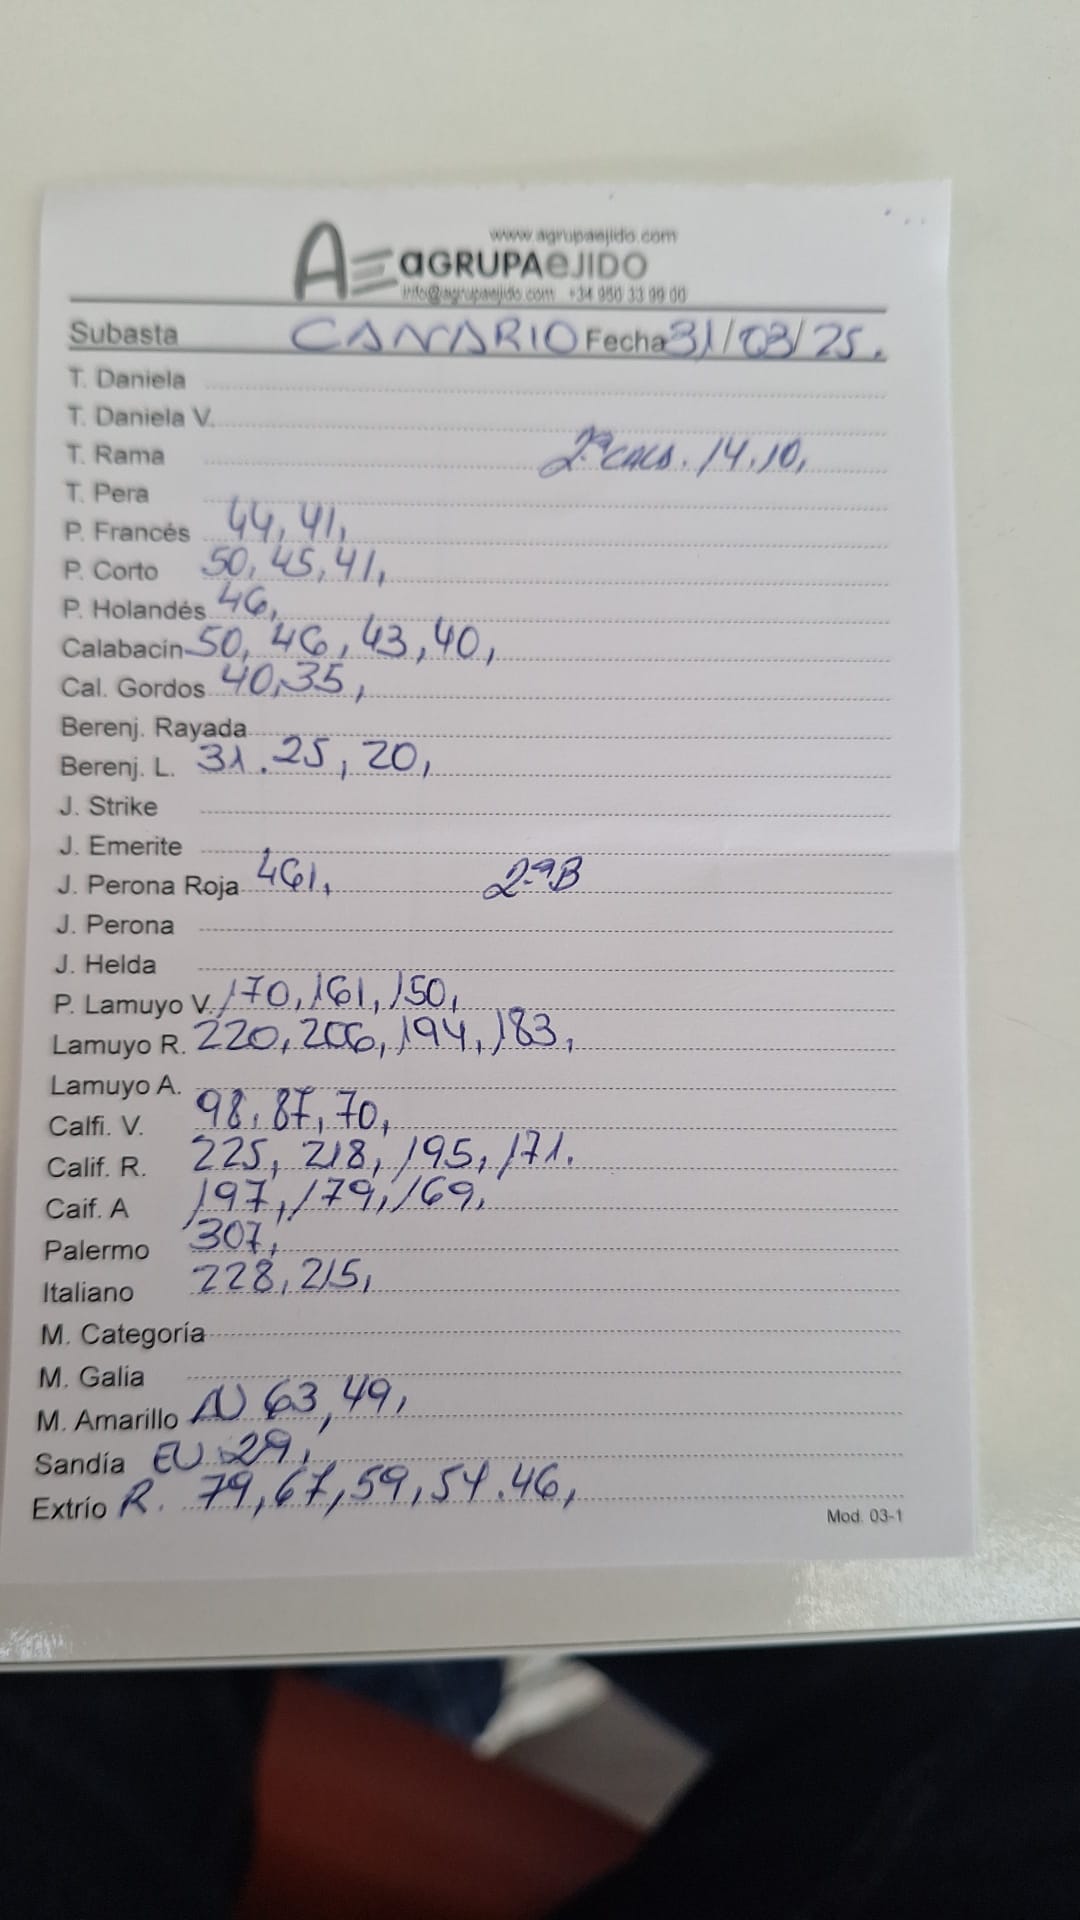 www.agrupaejido.com
AE AGRUPAEJIDO
info@agrupaejido.com +34 950 33 99 00
Subasta CANARIO Fecha 31/03/25.
T. Daniela
T. Daniela V.
T. Rama 2ª CALB. 14.10,
T. Pera
P. Francés 44, 41,
P. Corto 50, 45, 41,
P. Holandés 46,
Calabacin 50, 46, 43, 40,
Cal. Gordos 40, 35,
Berenj. Rayada
Berenj. L. 31. 25, 20,
J. Strike
J. Emerite
J. Perona Roja 461, 2ªB
J. Perona
J. Helda
P. Lamuyo V. 170, 161, 150,
Lamuyo R. 220, 206, 194, 183,
Lamuyo A.
Calfi. V. 98, 87, 70,
Calif. R. 225, 218, 195, 171.
Caif. A 197, 179, 169,
Palermo 307,
Italiano 228, 215,
M. Categoría
M. Galia
M. Amarillo N 63, 49,
Sandía EU 29,
Extrío R. 79, 67, 59, 54. 46,
Mod. 03-1